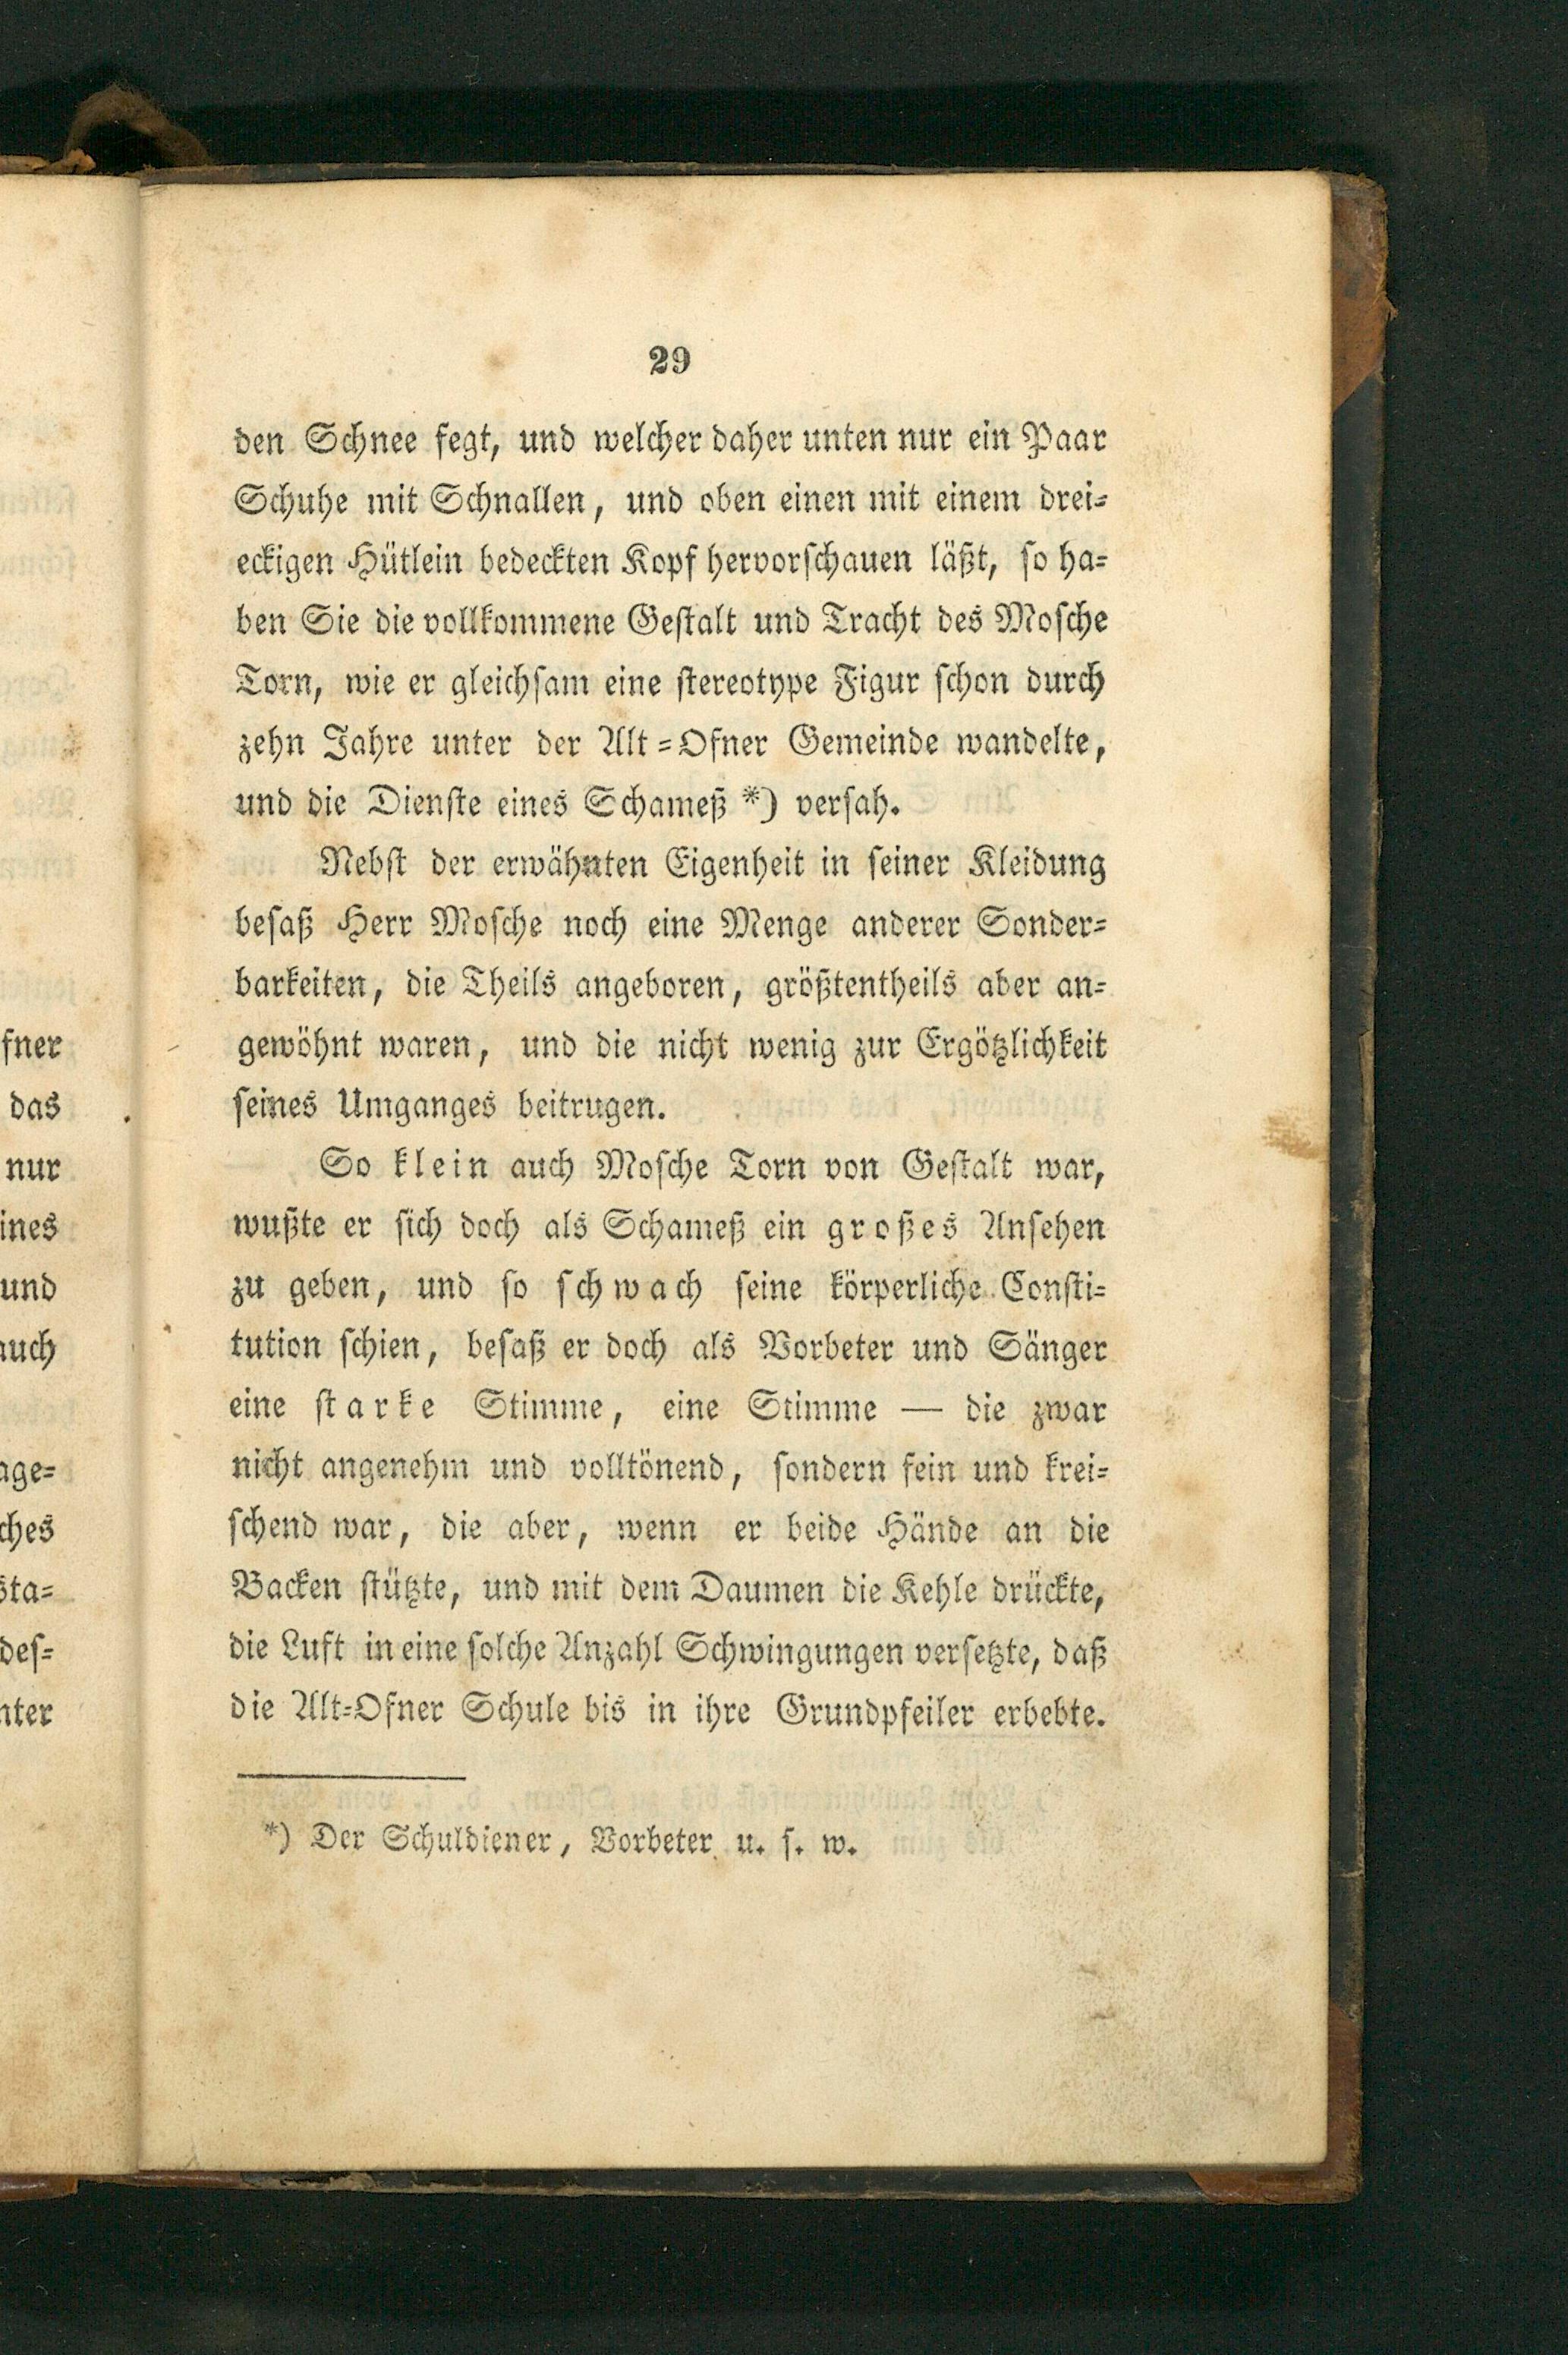 29
den Schnee fegt, und welcher daher unten nur ein Paar
Schuhe mit Schnallen, und oben einen mit einem drei-
eckigen Hütlein bedeckten Kopf hervorschauen läßt, so ha-
ben Sie die vollkommene Gestalt und Tracht des Mosche
Torn, wie er gleichsam eine stereotype Figur schon durch
zehn Jahre unter der Alt-Ofner Gemeinde wandelte,
und die Dienste eines Schameß *) versah.
Nebst der erwähnten Eigenheit in seiner Kleidung
besaß Herr Mosche noch eine Menge anderer Sonder-
barkeiten, die Theils angeboren, größtentheils aber an-
gewöhnt waren, und die nicht wenig zur Ergötzlichkeit
seines Umganges beitrugen.
So klein auch Mosche Torn von Gestalt war,
wußte er sich doch als Schameß ein großes Ansehen
zu geben, und so schwach seine körperliche Consti-
tution schien, besaß er doch als Vorbeter und Sänger
eine starke Stimme, eine Stimme — die zwar
nicht angenehm und volltönend, sondern fein und krei-
schend war, die aber, wenn er beide Hände an die
Backen stützte, und mit dem Daumen die Kehle drückte,
die Luft in eine solche Anzahl Schwingungen versetzte, daß
die Alt-Ofner Schule bis in ihre Grundpfeiler erbebte.
*) Der Schuldiener, Vorbeter u. s. w.